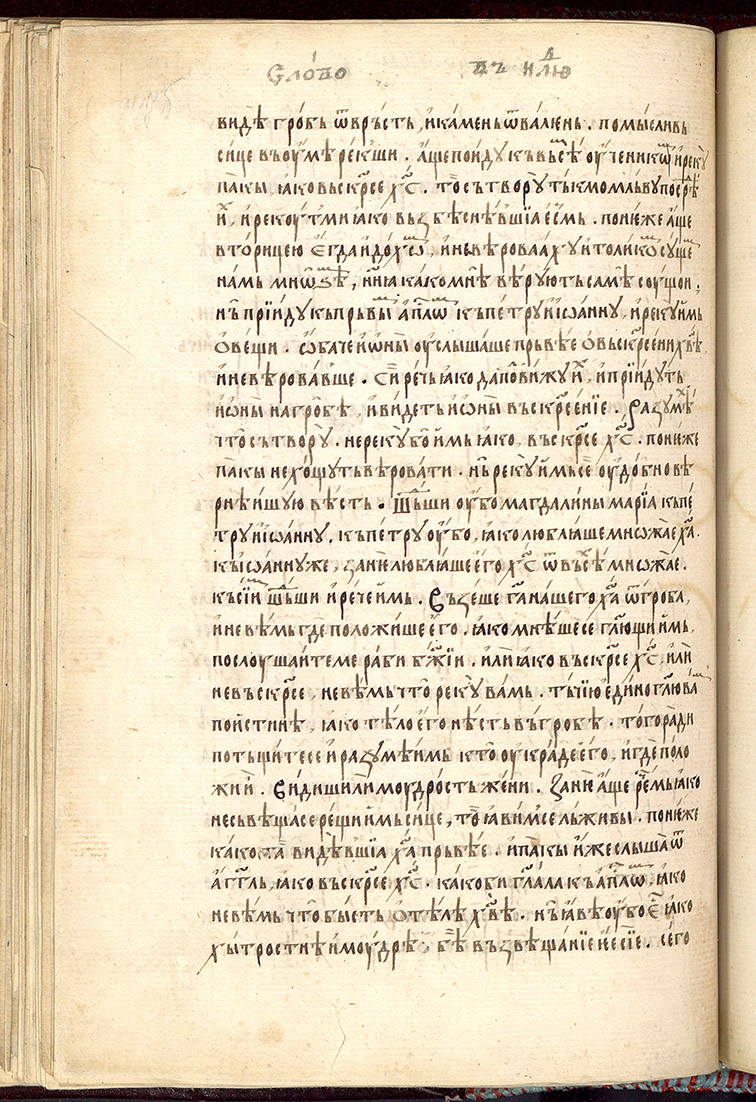 Сло́во въ н҃лю
видѣ гробь ѿврьсть, и҆ камень ѿвалѥнь. помысливь
сице въ оу҆мѣ рекши. а҆ще пойду къ вьсѣ оу҆ченикѡ и҆ реку
пакы, ꙗ҆ко вьскр҃се х҃с. то сътворꙋ ты
и҆ рекоуть ми ꙗ҆ко е҆смь. понѥже а҆ще
вторицею е҆гда и҆дохѡ, и҆ невѣроваахꙋ и҆ толикѡ сꙋще
намь мнѡзѣ, нн҃ꙗ како мнѣ вѣрꙋють самѣ соущои.
нь прїидꙋ къ прьвы а҆пл҃ѡ къ петрꙋ и҆ і҆ѡанну, и҆ рекꙋ и҆мь
ѻ҆ вещи. ѡ҆баче и҆ ѡ҆ны оу҆слышаше прьвѣе ѻ҆ вьскр҃сени хв҃ѣ
и҆ невѣровавше. сї рѣчь ꙗ҆ко да подвижꙋ и҆, и҆ прїидꙋть
и҆ ѡ҆ны на гробѣ, и҆ видеть и҆ ѡ҆ны въскр҃сенїе. разꙋмѣ
что сътворꙋ. не рекꙋ бо и҆мь ꙗ҆ко, въскр҃се х҃с. понѥже
пакы не хощꙋть вѣровати. нь рекꙋ и҆мь се оу҆добновѣ
рнѣишꙋю вѣсть. Шьⷣши оу҆бо магдалини марїа къ пе
трꙋ и҆ і҆ѡанну. къ петрꙋ оу҆бо, ꙗ҆ко люблꙗше мнѡжае х҃а.
къ і҆ѡаннꙋ же, занѥ люблꙗше е҆го х҃с ѿ вьсѣ мнѡжае.
къ сїи шьⷣши и҆ рече и҆мь. Възеше г҃а нашего х҃а ѿ гроба,
и҆ не вѣмь где положише е҆го. ꙗ҆ко мнѣше се гл҃ющи и҆мь.
послоушаите ме раби бж҃їи. и҆ли ꙗ҆ко въскр҃се х҃с, и҆ли
не въскр҃се, не вѣмь что рекꙋ вамь. тъчїю е҆дино гл҃ю ва
поистинѣ, ꙗ҆ко тѣло е҆го нѣсть въ гробѣ. того ради
потьщите се и҆ разꙋмѣимь кто оу҆краде е҆го, и҆ где поло
жи и҆. Видиши ли моудрость жени. Занѥ а҆ще рч҃емь ꙗ҆ко
не съвѣща се рещи и҆мь сице, то ꙗ҆вим се льживы. понѥже
како та видѣвшїа х҃а прьвѣе. и҆ пакы и҆же слыша ѿ
а҆гг҃ль, ꙗ҆ко въскр҃се х҃с. како би гл҃ала къ а҆пл҃ѡ, ꙗ҆ко
не вѣмь что бысть ѻ҆ тѣлѣ хв҃ѣ. нь ꙗ҆вѣ оу҆бо е҆с ꙗ҆ко
хытростнѣ и҆ моудрѣ, бѣ възвѣщанїе ѥ҆е сїе. сего